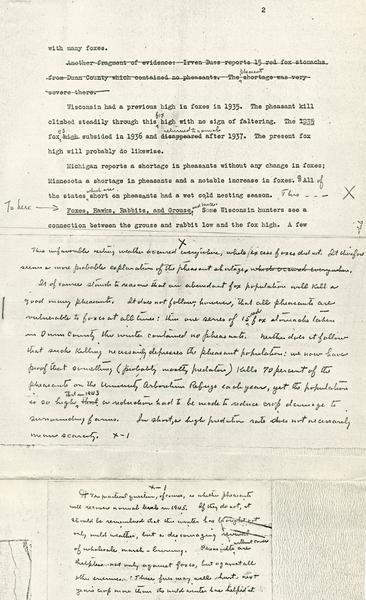 2
with many foxes.
Another fragment of evidence: Irven Buss reports 15 red fox stomachs
from Dunn County which contained no pheasants. The pheasant shortage was very
severe there.
Wisconsin had a previous high in foxes in 1935. The pheasant kill
climbed steadily through this fox high with no sign of faltering. The 1935
fox high subsided in 1936 and disappeared returned to normal after 1937. The present fox
high will probably do likewise.
Michigan reports a shortage in pheasants without any change in foxes;
Minnesota a shortage in pheasants and a notable increase in foxes. All of
the states which are short on pheasants had a wet cold nesting season. This --- X
To here → Foxes, Hawks, Rabbits, and Grouse. Some Wisconsin hunters see a
connection between the grouse and rabbit low and the fox high. A few
X
This unfavorable nesting weather occurred everywhere, while excess foxes did not. It therefore
seems a more probable explanation of the pheasant shortage
It of course stands to reason that an abundant fox population will kill a
good many pheasants. It does not follow, however, that all pheasants are
vulnerable to foxes at all times: thus one series of 15 red fox stomachs taken
in Dunn County this winter contained no pheasants. Neither does it follow
that such killing necessarily depresses the pheasant population: we now have
proof that something (probably mostly predators) kills 70 percent of the
pheasants on the University Arboretum Refuge each year, yet the population
is so high that in 1943 a reduction had to be made to reduce crop damage to
surrounding farms. In short, a high predation rate does not necessarily
mean scarcity. X-1
X-1
A practical question, of course, is whether pheasants
will recover normal levels in 1945. If they do not, it
should be remembered that this winter has brought not
only mild weather, but a discouraging
of wholesale marsh-burning. Pheasants without cover are
helpless not only against foxes, but against all
other enemies. These fires may well hurt next
years crop more than the mild winter has helped it